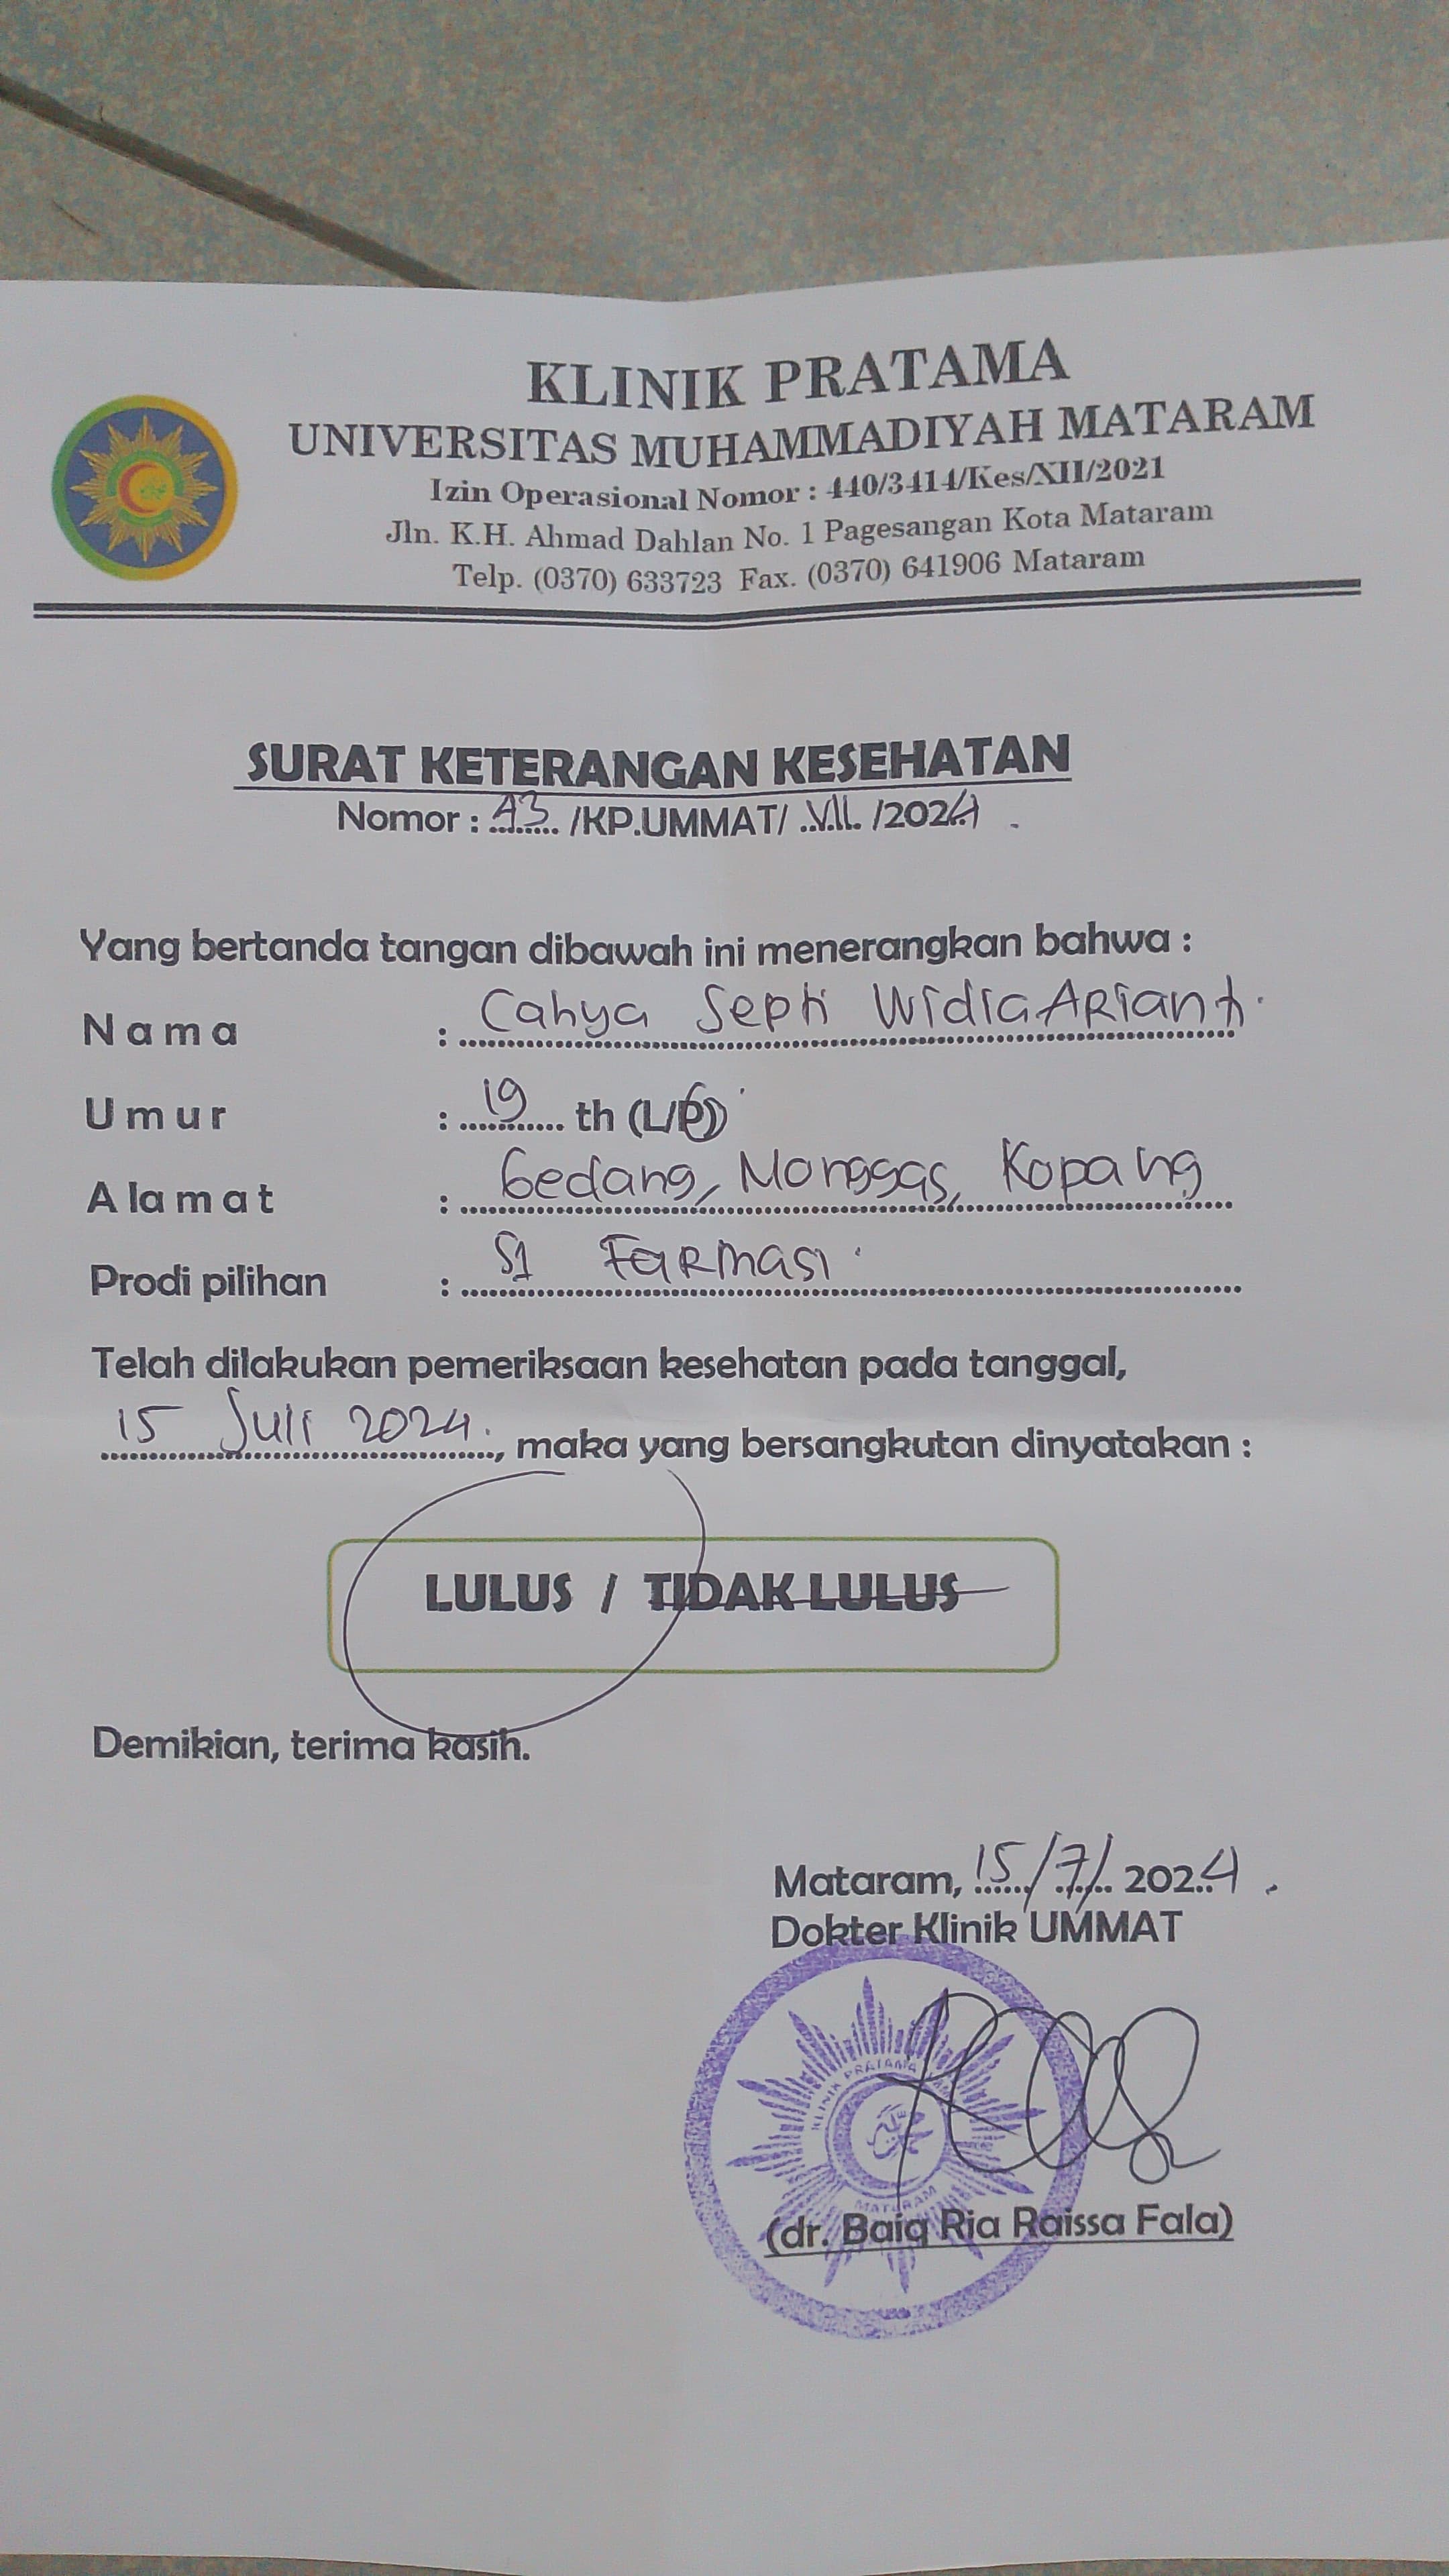 KLINIK PRATAMA
UNIVERSITAS MUHAMMADIYAH MATARAM
Izin Operasional Nomor : 440/3414/Kes/XII/2021
Jln. K.H. Ahmad Dahlan No. 1 Pagesangan Kota Mataram
Telp. (0370) 633723 Fax. (0370) 641906 Mataram
SURAT KETERANGAN KESEHATAN
Nomor : 43 /KP.UMMAT/ VII /2024
Yang bertanda tangan dibawah ini menerangkan bahwa :
Nama : Cahya Septi Widia Arianti
Umur : 19 th (L/P)
Alamat : Gedang, Monggas, Kopang
Prodi pilihan : S1 Farmasi
Telah dilakukan pemeriksaan kesehatan pada tanggal,
15 Juli 2024, maka yang bersangkutan dinyatakan :
LULUS / TIDAK LULUS
Demikian, terima kasih.
Mataram, 15/7/2024
Dokter Klinik UMMAT
KLINIK PRATAMA
MATARAM
(dr. Baiq Ria Raissa Fala)